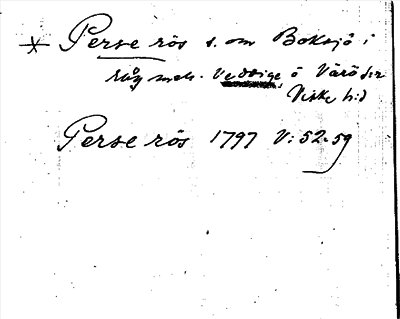 * Perse rös s. om Boksjö i
råg mels. Veddige o Värö sn
Viske hd
Perse rös 1797 V: 52-59